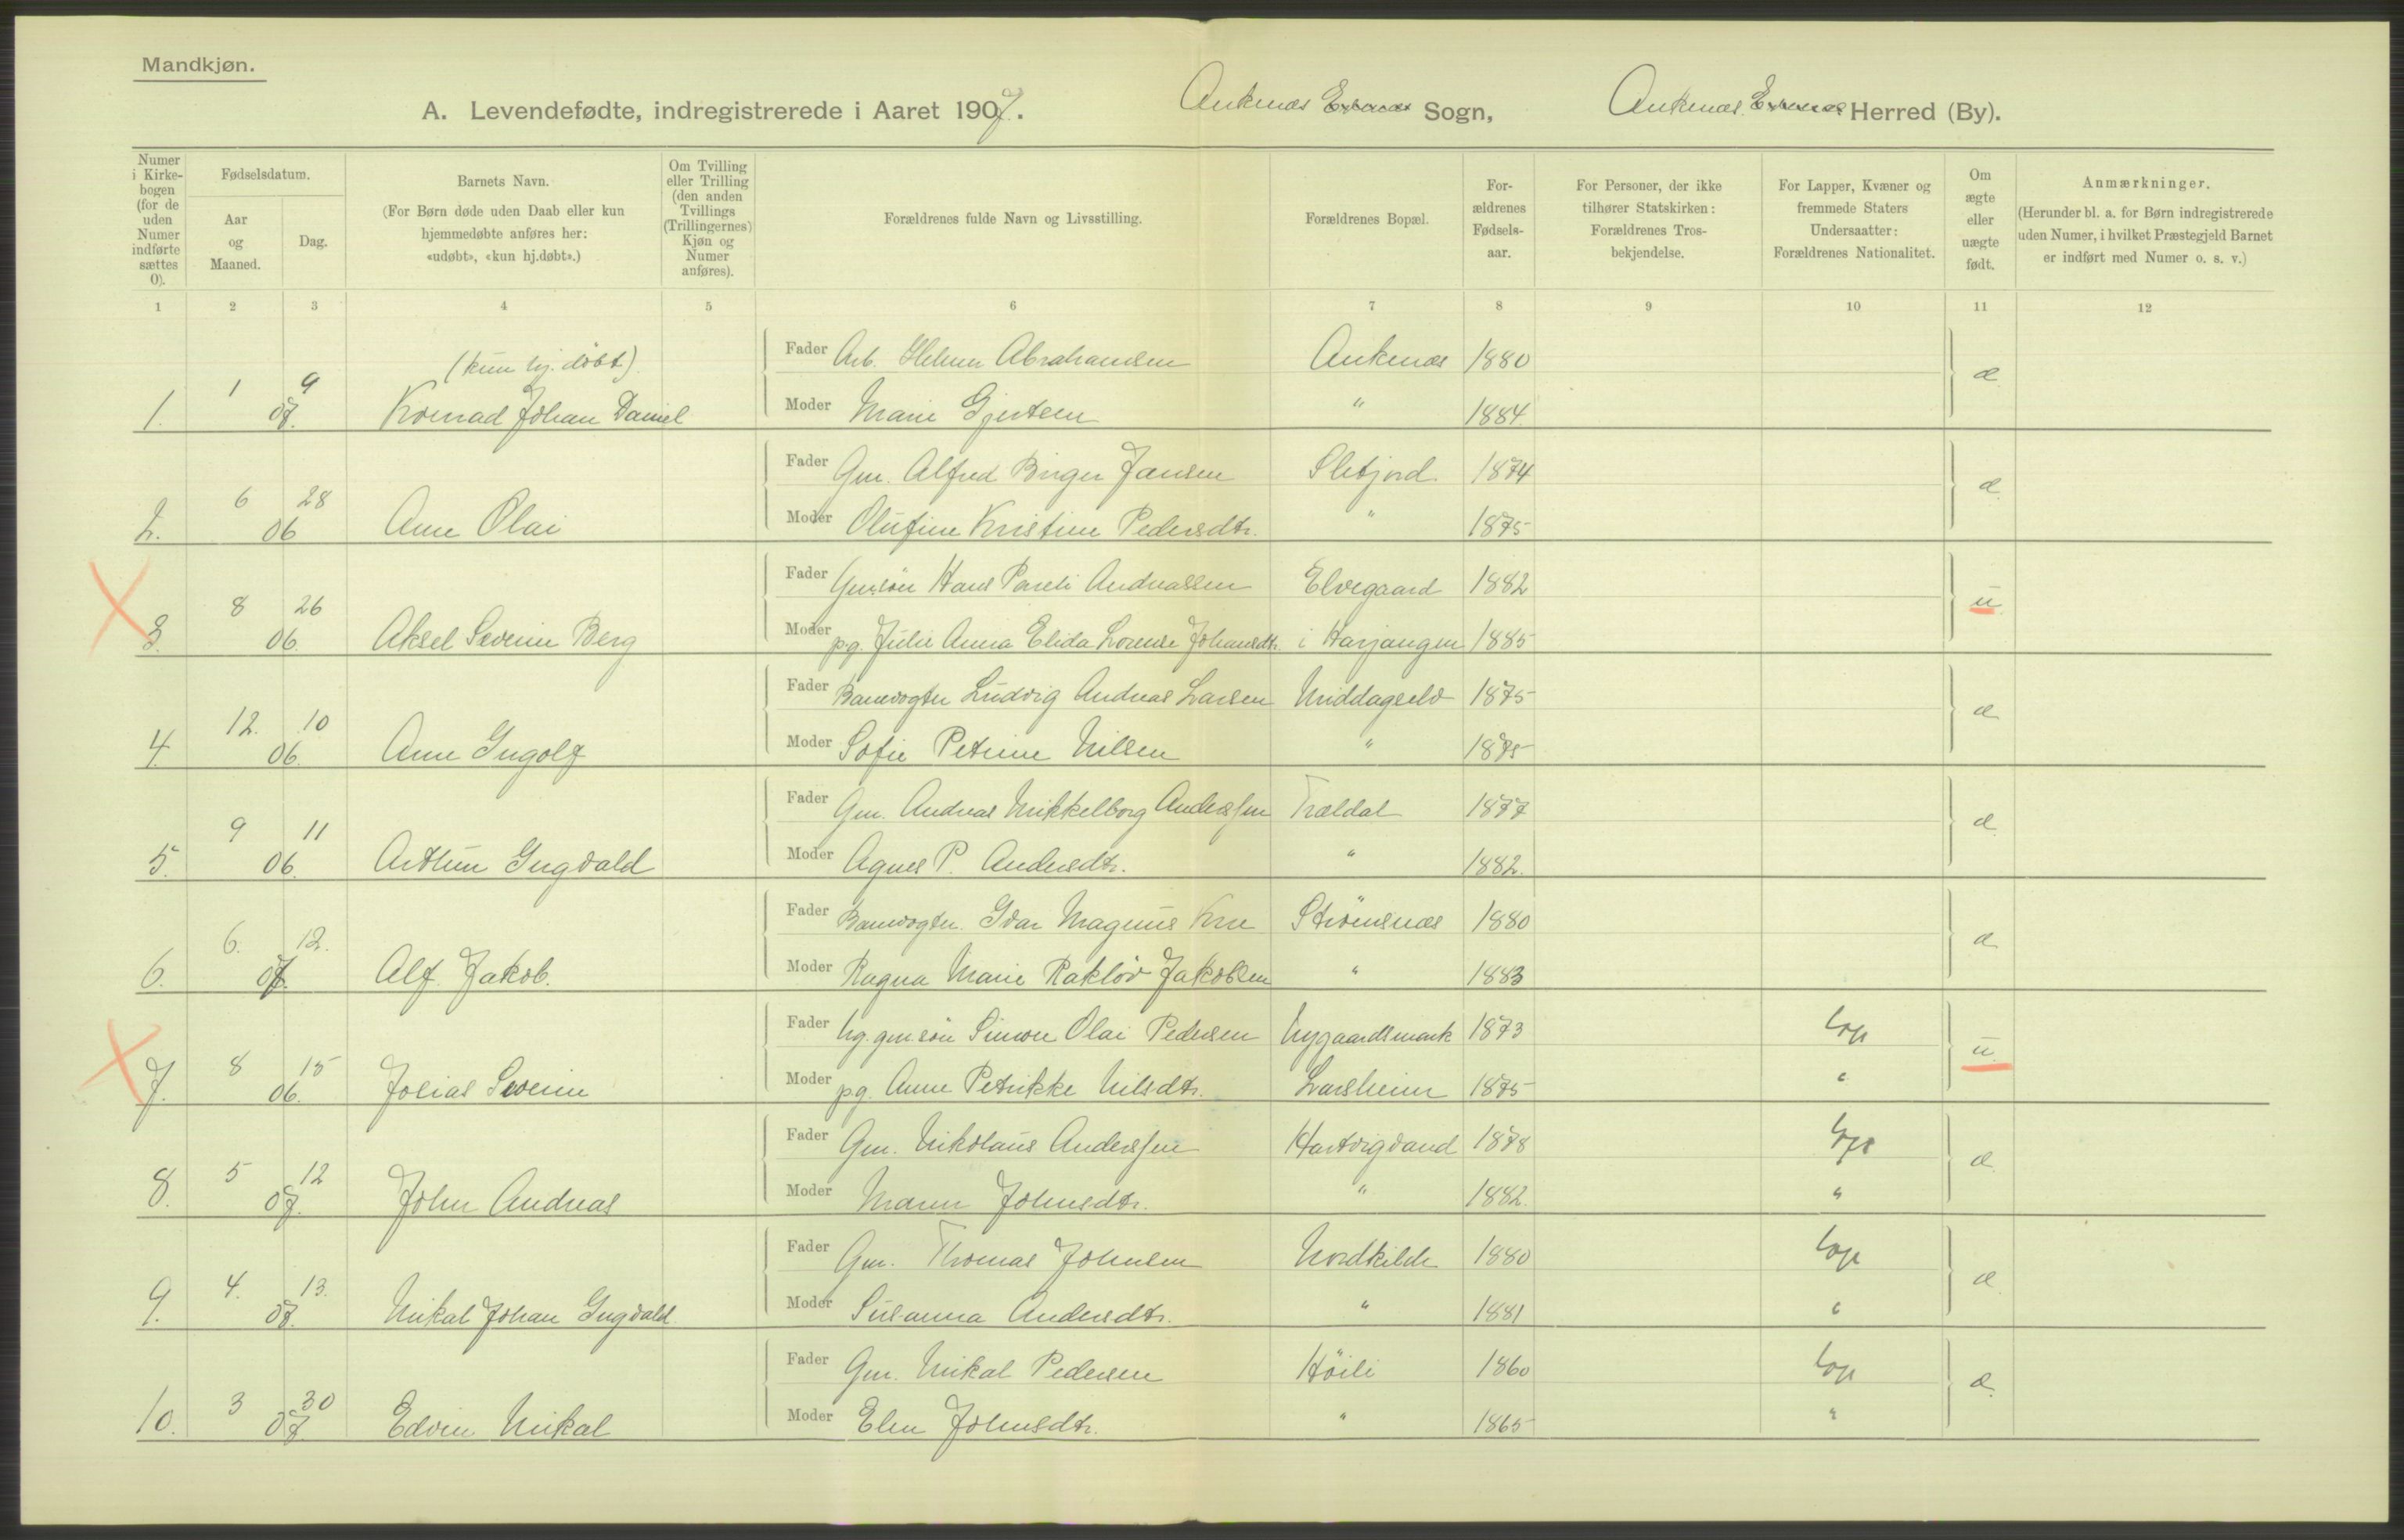 Mandkjøn.
A. Levendefødte, indregistrerede i Aaret 1907. Ankenæs Sogn, Ankenæs Herred (By).
Numer i Kirkebogen (for de uden Numer indførte sættes 0).
Fødselsdatum.
Aar og Maaned.
Dag.
Barnets Navn.
(For Børn døde uden Daab eller kun hjemmedøbte anføres her: «udøbt», «kun hj.døbt».)
Om Tvilling eller Trilling (den anden Tvillings (Trillingernes) Kjøn og Numer anføres).
Forældrenes fulde Navn og Livsstilling.
Forældrenes Bopæl.
For-ældrenes Fødsels-aar.
For Personer, der ikke tilhører Statskirken: Forældrenes Tros-bekjendelse.
For Lapper, Kvæner og fremmede Staters Undersaatter: Forældrenes Nationalitet.
Om ægte eller uægte født.
Anmærkninger.
(Herunder bl. a. for Børn indregistrerede uden Numer, i hvilket Præstegjeld Barnet er indført med Numer o. s. v.)
1 2 3 4 5 6 7 8 9 10 11 12
(kun hj. døbt) Fader Arb. Helmer Abrahamsen Ankenæs 1880 æ
1. 1 07. 9 Konrad Johan Daniel Moder Marie Gjertsen " 1884
Fader Gm. Alfred Birger Jansen Sletjord 1874 æ
2. 6 06 28 Arne Olai Moder Olufine Kristine Pedersdtr. " 1875
Fader Gm.søn Hans Pareli Andreassen Elvegaard 1882 u
3. 8 06. 26 Aksel Severin Berg Moder pg. Julie Anna Elida Lorense Johansdtr. i Harjangen 1885
Fader Banevogter Ludvig Andreas Larsen Middagselv 1875 æ
4. 12. 06. 10 Arne Ingolf Moder Sofie Petrine Nilsen " 1875
Fader Gm. Andreas Mikkelborg Anderssen Trældal 1877 æ
5. 9 06. 11 Arthur Ingvald Moder Agnes P. Andersdtr. " 1882.
Fader Banevogter. Ivar Magnus Kne Strømsnæs 1880 æ
6. 6. 07. 12. Alf Jakob. Moder Ragna Marie Rakløv Jakobsen " 1883
Fader Ug. gm.søn Simon Olai Pedersen Nygaardsmark 1873 Lap u
7. 8 06. 15 Josias Severin Moder pg. Anne Petrikke Nilsdtr. Larsheim 1875 "
Fader Gm. Nikolaus Anderssen Hartvigvand 1878 Lap æ
8. 5 07. 12 John Andreas Moder Maren Johnsdtr. " 1882. "
Fader Gm. Thomas Johnsen Nordkilde 1880 Lap æ
9. 4. 07. 13. Mikal Johan Ingvald Moder Susanna Andersdtr. " 1881 "
Fader Gm. Mikal Pedersen Høili 1860 Lap æ
10. 3 07 30 Edvin Mikal Moder Elen Johnsdtr. " 1865 "